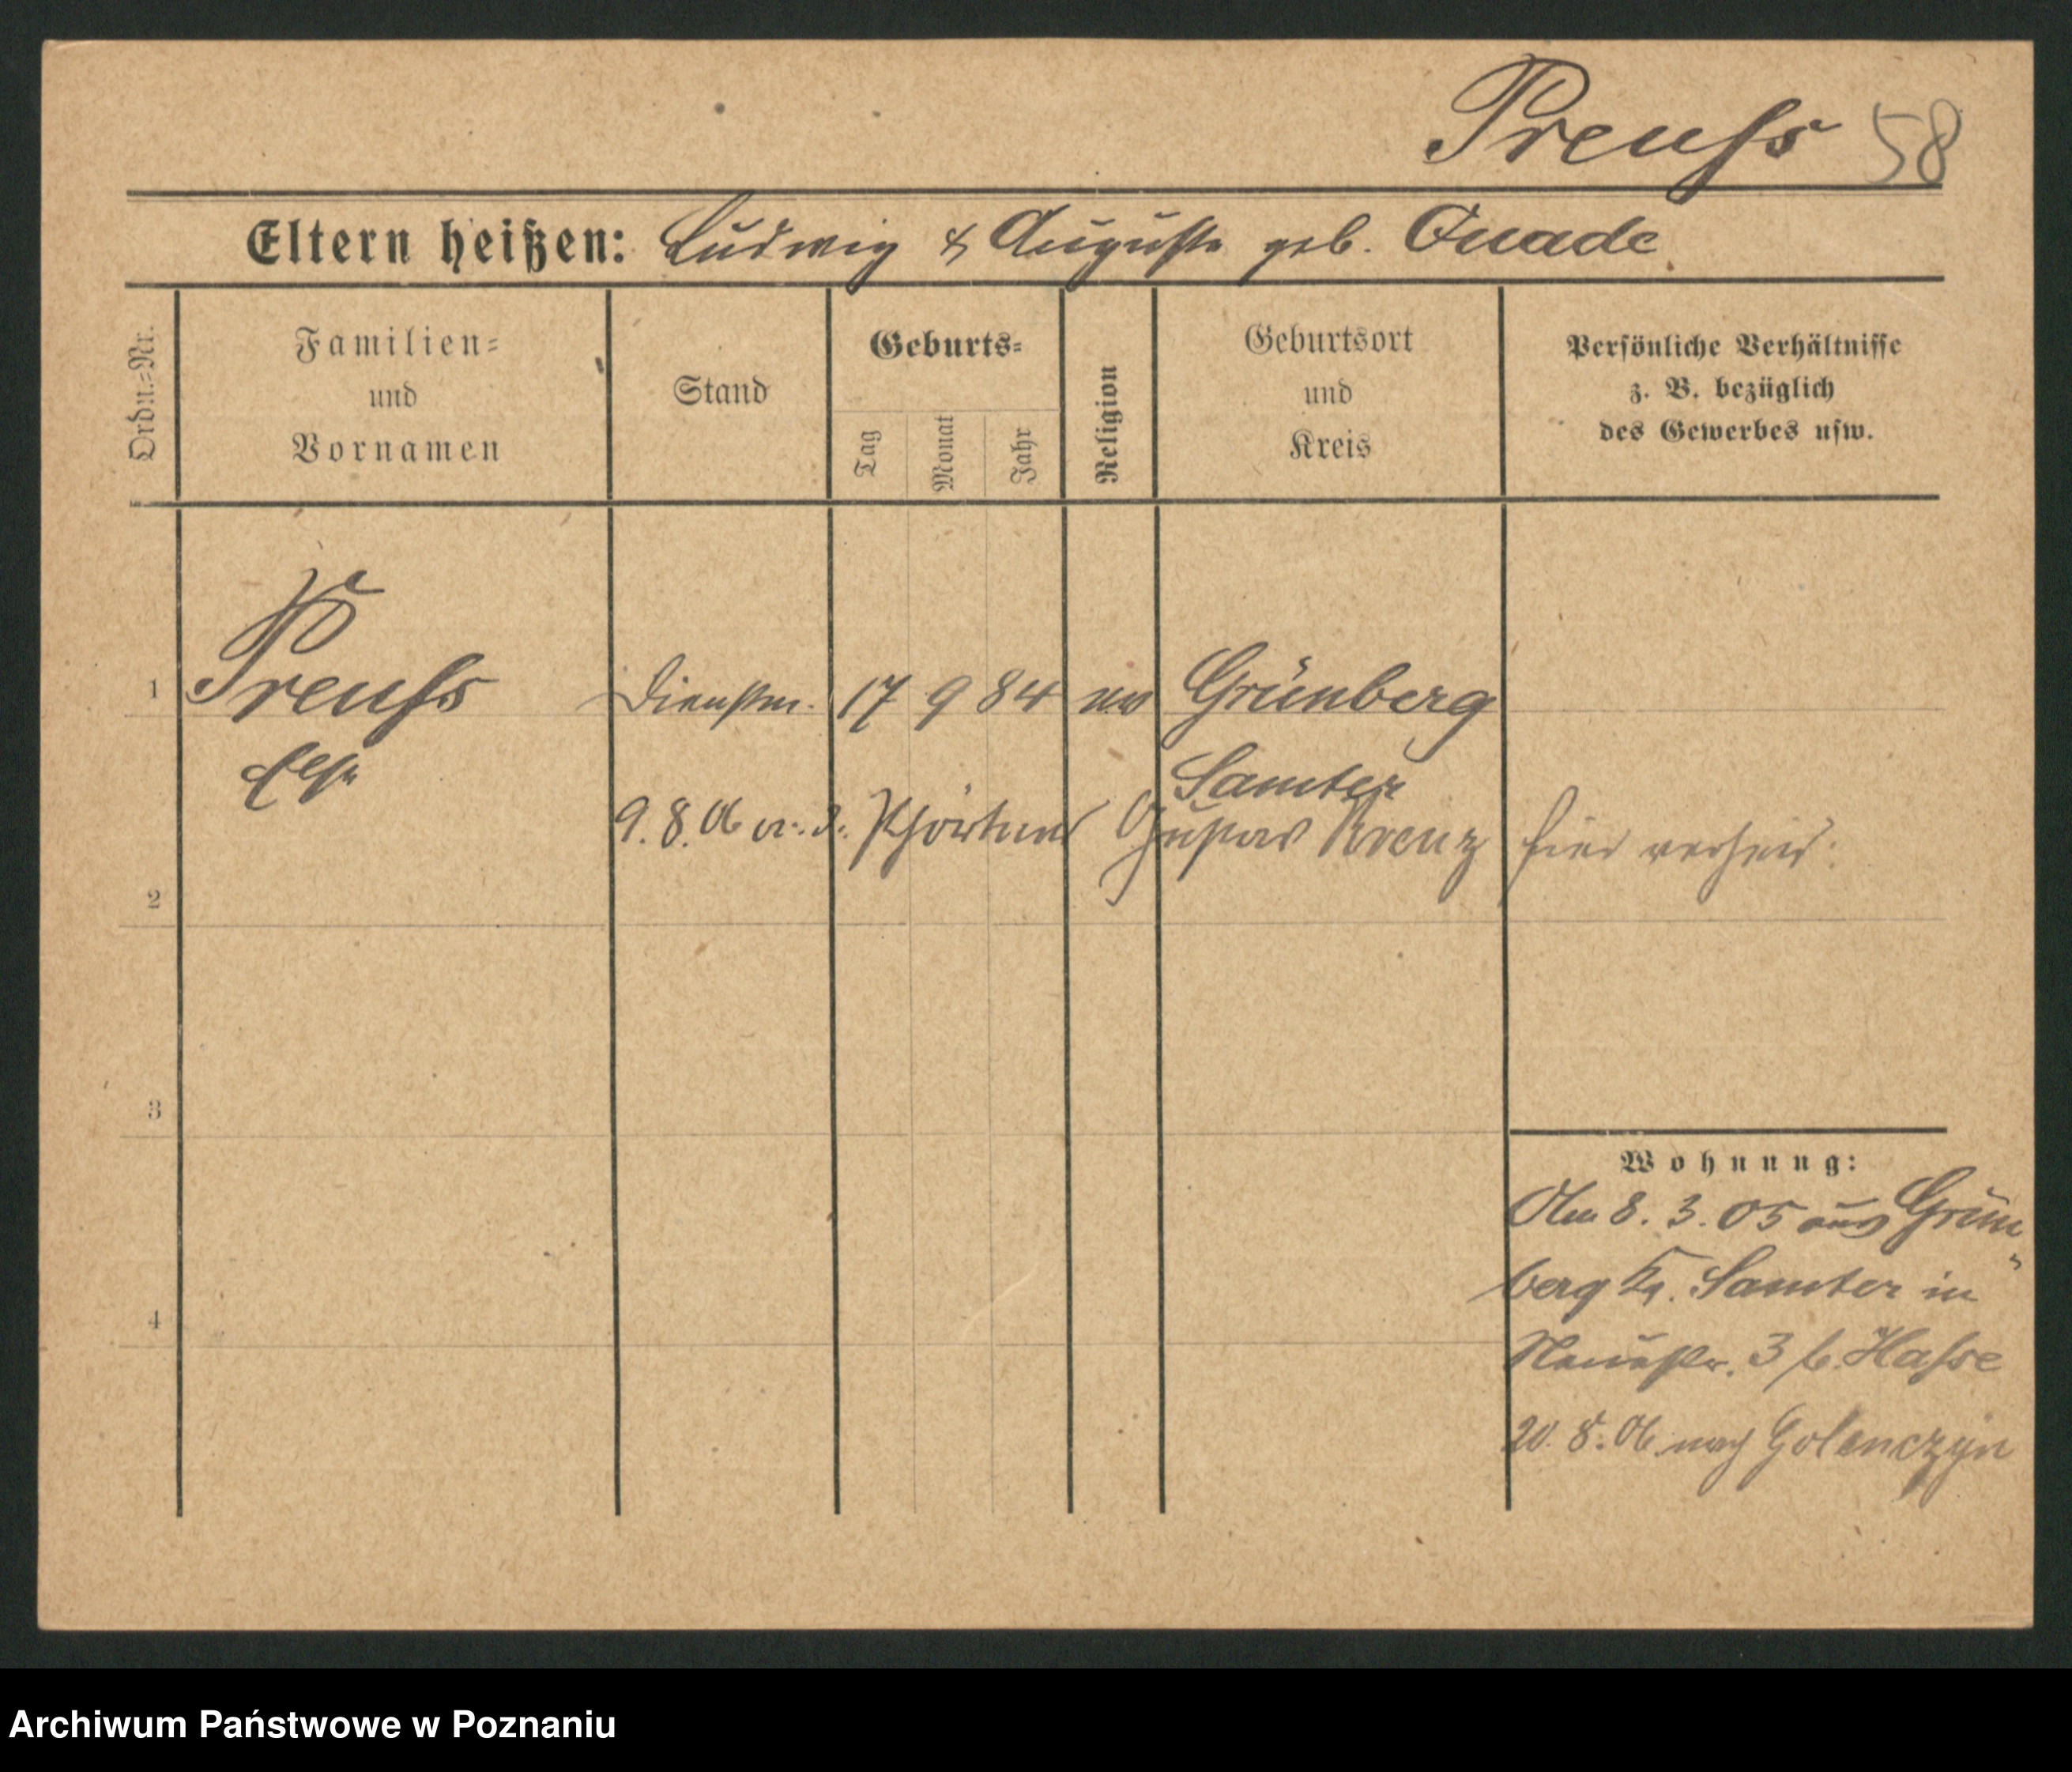 Preuſs 58
Eltern heißen: Ludwig & Auguste geb. Quade
Ordn.=Nr.
Familien=
und
Vornamen
Stand
Geburts=
Tag
Monat
Jahr
Religion
Geburtsort
und
Kreis
Persönliche Verhältnisse
z. B. bezüglich
des Gewerbes usw.
1 Preuſs Dienstm. 17 9 84 ev Grünberg
Else
Samter
9.8.06 m. d. Gustav Krenz hier verheir:
2
3
4
Wohnung:
Am 8. 3. 05 aus Grün
berg Kr. Samter in
Neuestr. 3 b. Haſse
20. 8. 06 nach Golenczyn
Archiwum Państwowe w Poznaniu